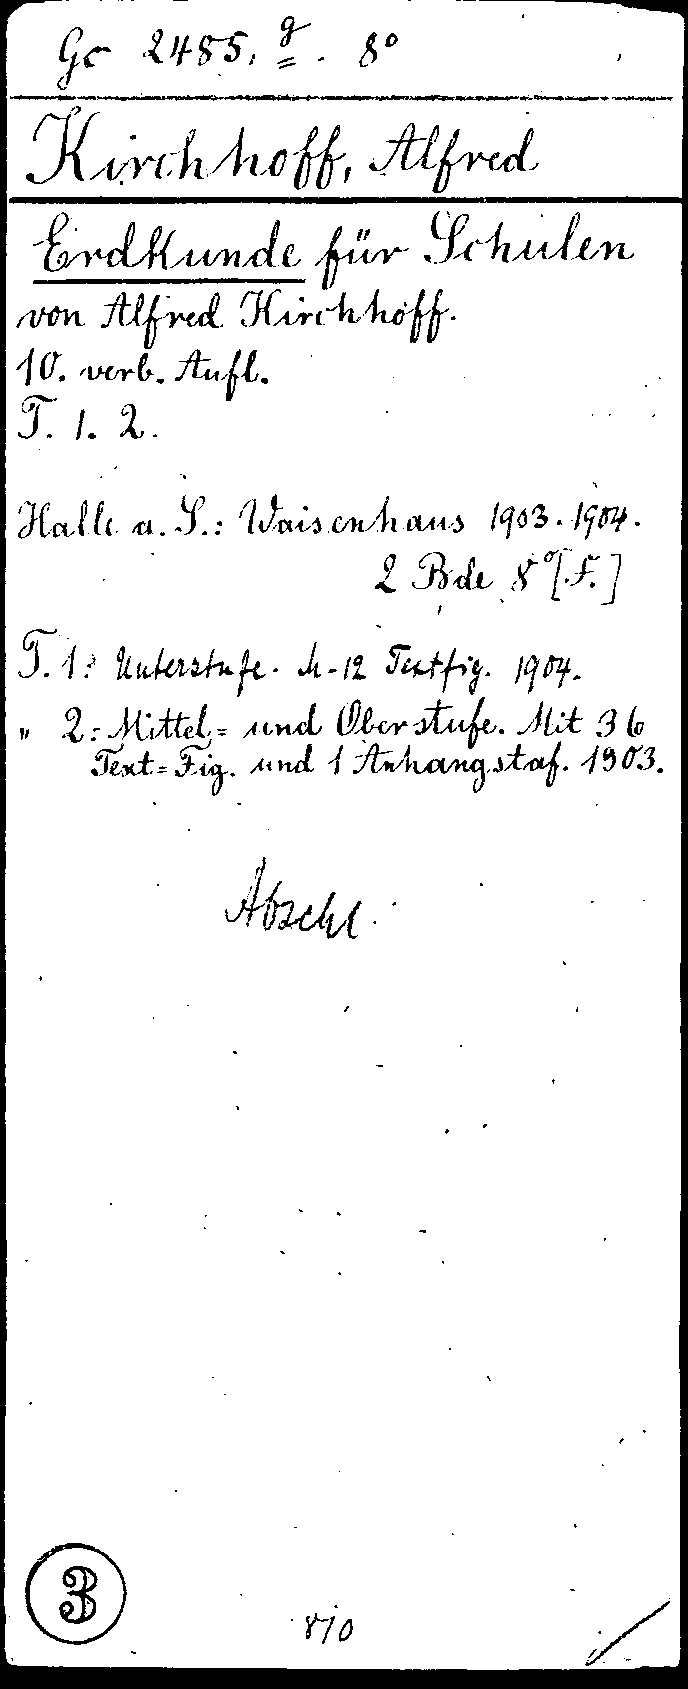 Gc 2485. g. 8°
Kirchhoff, Alfred
Erdkunde für Schulen
von Alfred Kirchhoff.
10. verb. Aufl.
T. 1. 2.
Halle a. S.: Waisenhaus 1903. 1904.
2 Bde 8° [F.]
T. 1: Unterstufe. M. 12 Textfig. 1904.
" 2: Mittel= und Oberstufe. Mit 36
Text=Fig. und 1 Anhangstaf. 1903.
Abschl
3